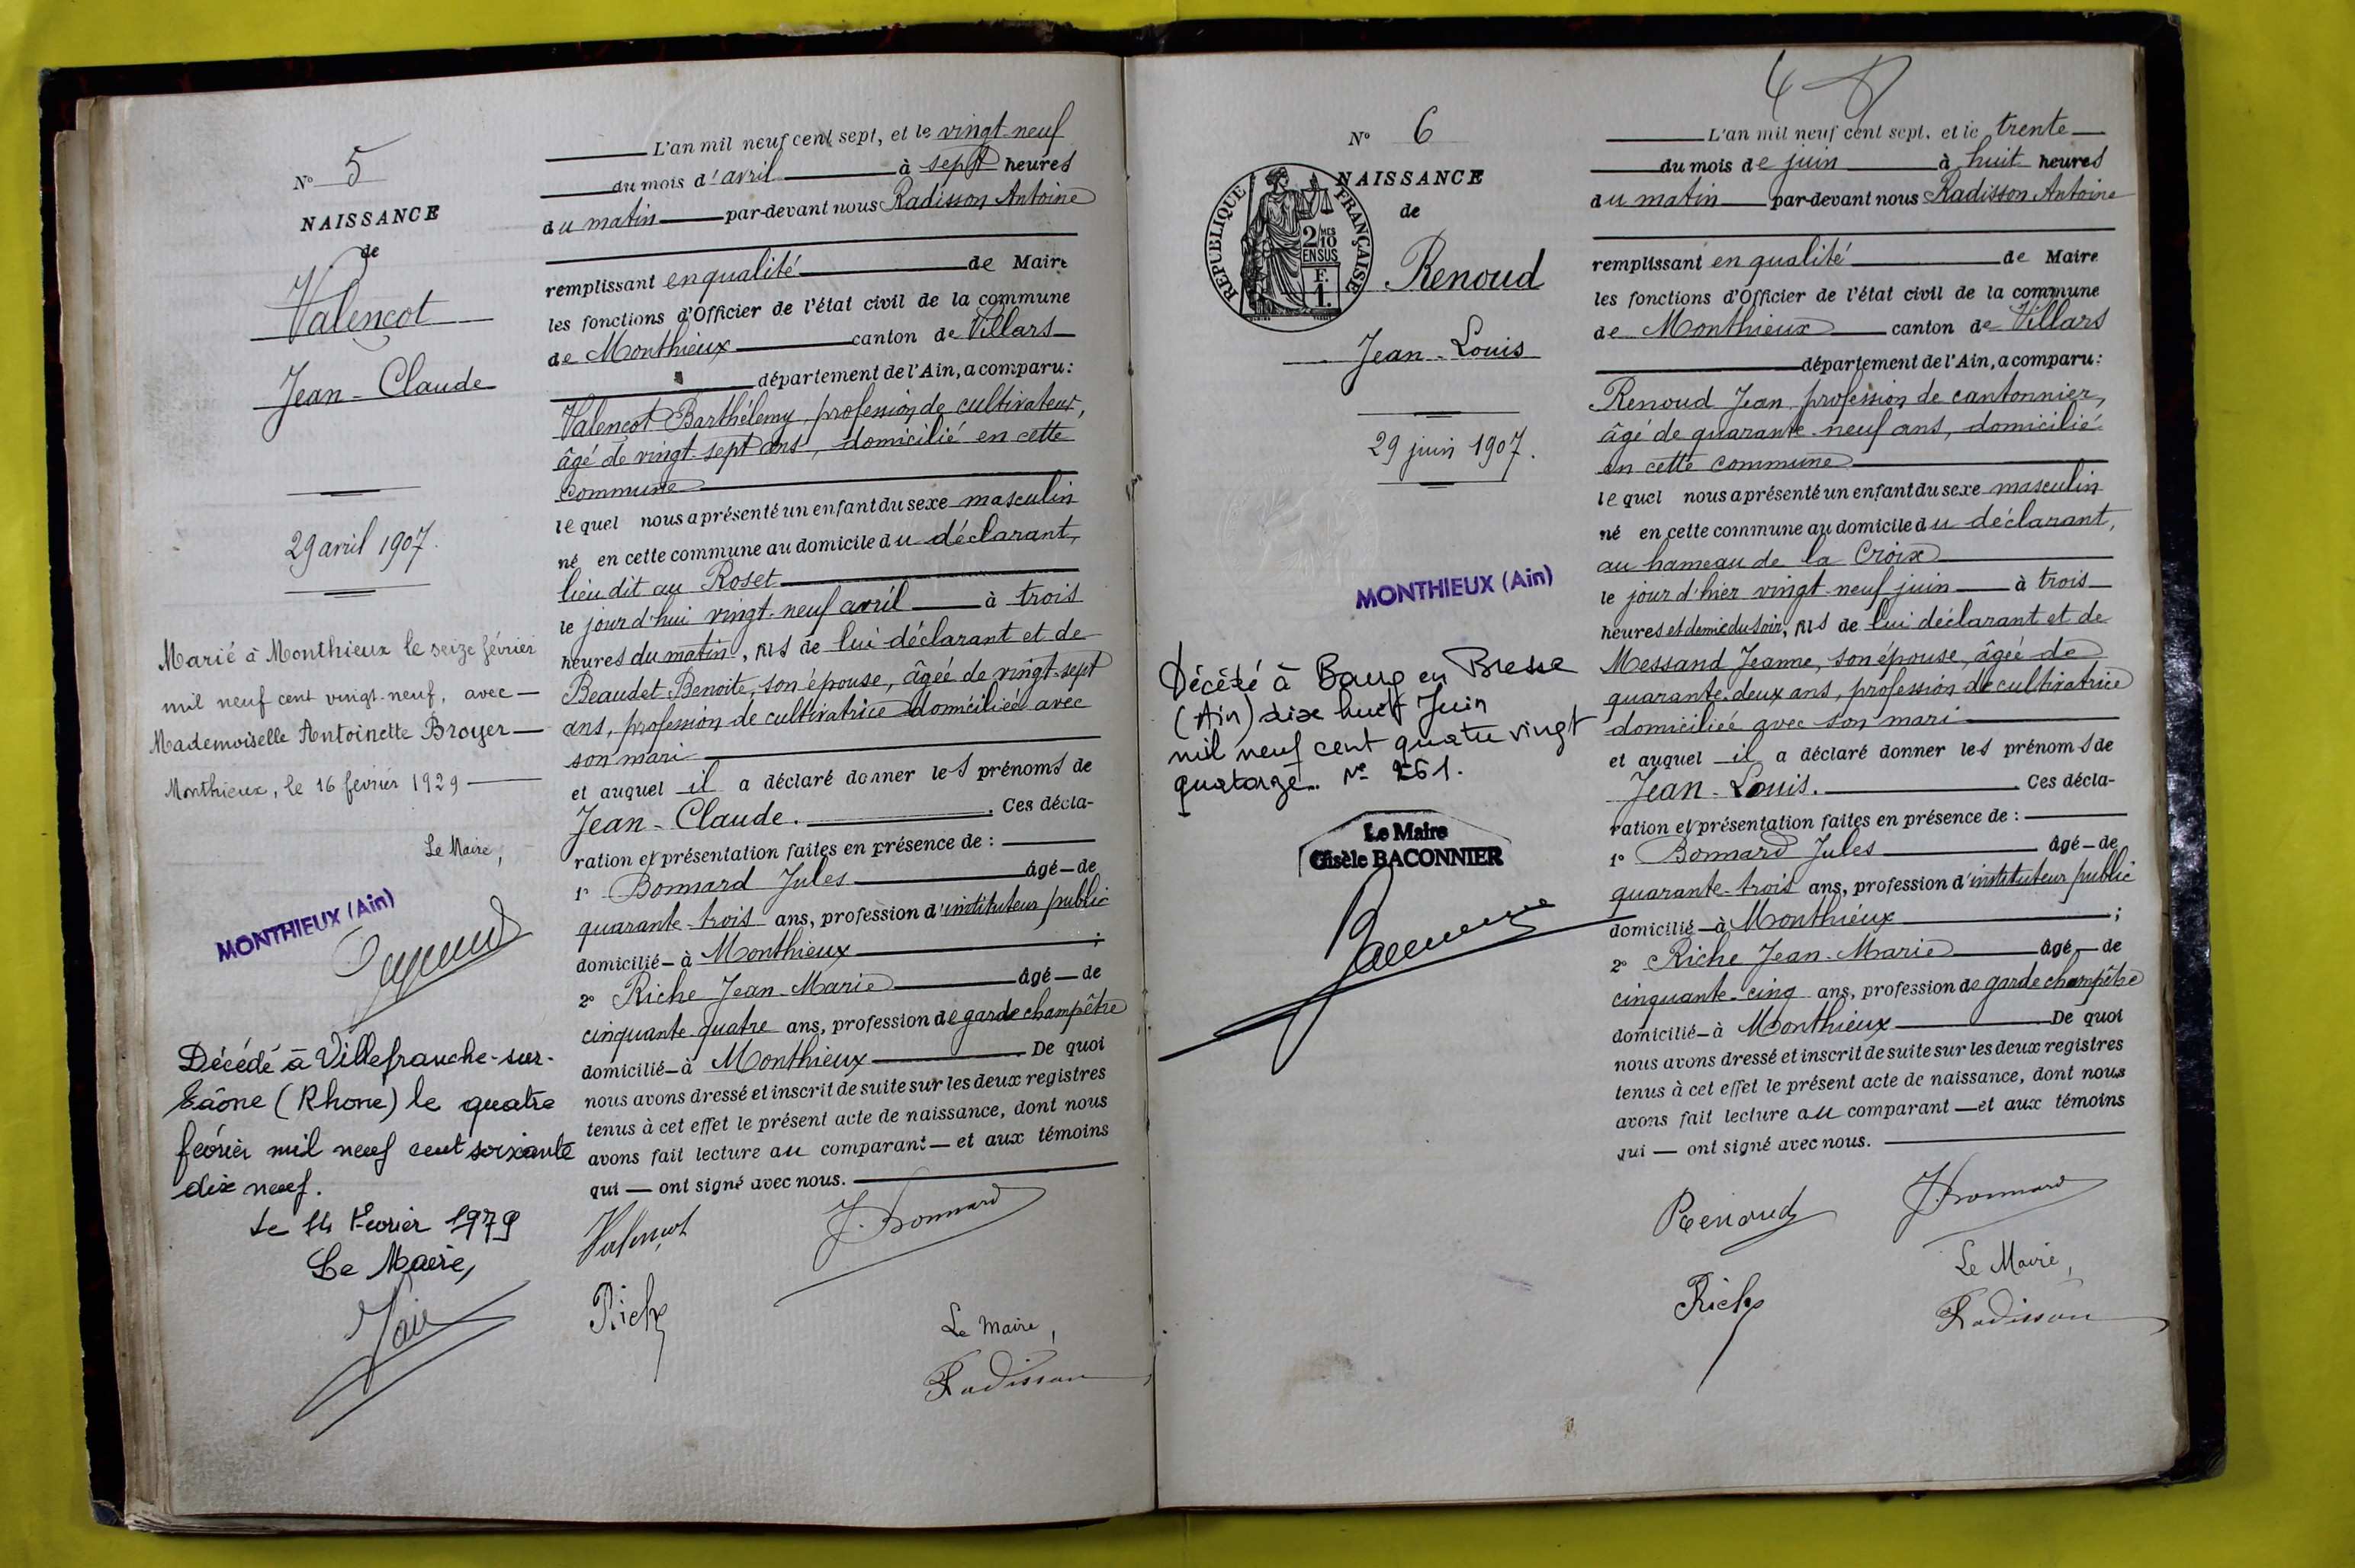 N° 5
NAISSANCE
de
Valençot
Jean-Claude
29 avril 1907.
Marié à Monthieux le seize février
mil neuf cent vingt-neuf, avec
Mademoiselle Antoinette Broyer
Monthieux, le 16 février 1929
Le Maire,
MONTHIEUX (Ain)
Décédé à Villefranche-sur-
Saône (Rhone) le quatre
février mil neuf cent soixante
dix neuf.
Le 14 Fevrier 1979
Le Maire,
L'an mil neuf cent sept, et le vingt-neuf
du mois d'avril à sept heures
du matin par-devant nous Radisson Antoine
remplissant en qualité de Maire
les fonctions d'Officier de l'état civil de la commune
de Monthieux canton de Villars
département de l'Ain, a comparu:
Valençot Barthélemy, profession de cultivateur,
âgé de vingt-sept ans, domicilié en cette
commune
lequel nous a présenté un enfant du sexe masculin
né en cette commune au domicile du déclarant,
lieu dit au Roset
le jour d'hui vingt-neuf avril à trois
heures du matin, fils de lui déclarant et de
Beaudet Benoite, son épouse, âgée de vingt-sept
ans, profession de cultivatrice domiciliée avec
son mari
et auquel il a déclaré donner les prénoms de
Jean-Claude. Ces décla-
ration et présentation faites en présence de :
1° Bonnard Jules âgé de
quarante-trois ans, profession d'instituteur public
domicilié à Monthieux ;
2° Riche Jean-Marie âgé de
cinquante-quatre ans, profession de garde champêtre
domicilié à Monthieux De quoi
nous avons dressé et inscrit de suite sur les deux registres
tenus à cet effet le présent acte de naissance, dont nous
avons fait lecture au comparant et aux témoins
qui ont signé avec nous.
Valençot J. Bonnard
Riche
Le Maire,
Radisson
N° 6
NAISSANCE
de
REPUBLIQUE FRANÇAISE
2/10 MES
EN SUS
F.
1.
Renoud
Jean-Louis
29 juin 1907.
MONTHIEUX (Ain)
Décédé à Bourg en Bresse
(Ain) dix huit Juin
mil neuf cent quatre vingt
quatorze. N° 261.
Le Maire
Gisèle BACONNIER
L'an mil neuf cent sept, et le trente
du mois de juin à huit heures
du matin par-devant nous Radisson Antoine
remplissant en qualité de Maire
les fonctions d'Officier de l'état civil de la commune
de Monthieux canton de Villars
département de l'Ain, a comparu:
Renoud Jean profession de cantonnier,
âgé de quarante-neuf ans, domicilié
en cette commune
lequel nous a présenté un enfant du sexe masculin
né en cette commune au domicile du déclarant,
au hameau de la Croix
le jour d'hier vingt-neuf juin à trois
heures et demie du soir, fils de lui déclarant et de
Messand Jeanne, son épouse, âgée de
quarante-deux ans, profession de cultivatrice
domiciliée avec son mari
et auquel il a déclaré donner les prénoms de
Jean-Louis. Ces décla-
ration et présentation faites en présence de :
1° Bonnard Jules âgé de
quarante-trois ans, profession d'instituteur public
domicilié à Monthieux ;
2° Riche Jean-Marie âgé de
cinquante-cinq ans, profession de garde champêtre
domicilié à Monthieux De quoi
nous avons dressé et inscrit de suite sur les deux registres
tenus à cet effet le présent acte de naissance, dont nous
avons fait lecture au comparant et aux témoins
qui ont signé avec nous.
Renoud J. Bonnard
Le Maire,
Riche Radisson